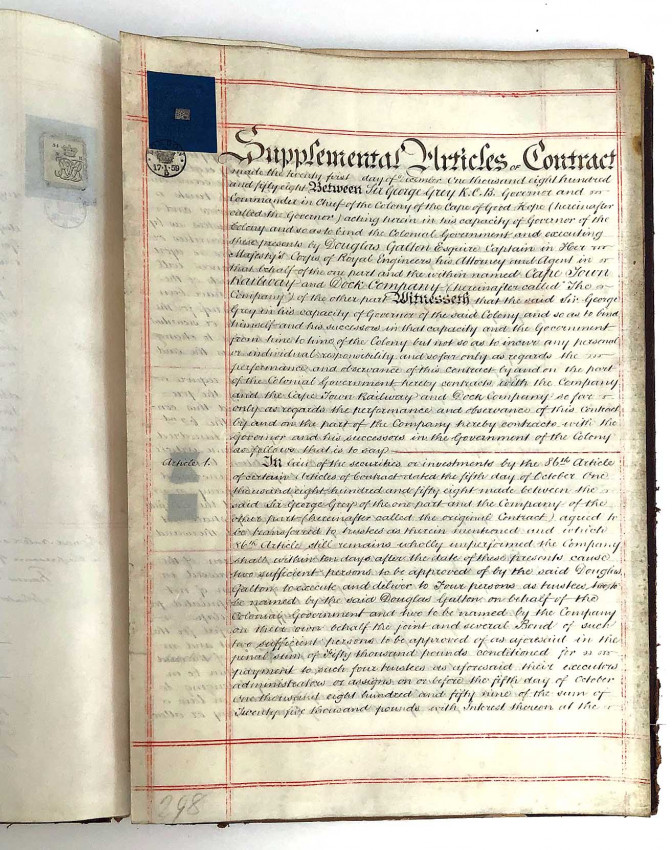 17·1·59
Supplemental Articles of Contract
made the twenty first day of December One thousand eight hundred
and fifty eight Between Sir George Grey K.C.B. Governor and
Commander in Chief of the Colony of the Cape of Good Hope (hereinafter
called the Governor) acting herein in his capacity of Governor of the
Colony and so as to bind the Colonial Government and executing
these presents by Douglas Galton Esquire Captain in Her
Majesty's Corps of Royal Engineers his Attorney and Agent in
that behalf of the one part and the within named Cape Town
Railway and Dock Company (hereinafter called "The
Company") of the other part Witnesseth that the said Sir George
Grey in his capacity of Governor of the said Colony and so as to bind
himself and his successors in that capacity and the Government
from time to time of the Colony but not so as to incur any personal
or individual responsibility and so far only as regards the
performance and observance of this contract by and on the part
of the Colonial Government hereby contracts with the Company
and the Cape Town Railway and Dock Company so far
only as regards the performance and observance of this Contract
by and on the part of the Company hereby contracts with the
Governor and his successors in the Government of the Colony
as follows that is to say
Article 1. In lieu of the securities or investments by the 86th Article
of certain Articles of Contract dated the fifth day of October One
thousand eight hundred and fifty eight made between the
said Sir George Grey of the one part and the Company of the
other part (hereinafter called the original Contract) agreed to
be transferred to trustees as therein mentioned and which
86th Article still remains wholly unperformed the Company
shall within ten days after the date of these presents cause
two sufficient persons to be approved of by the said Douglas
Galton to execute and deliver to Four persons as trustees, two to
be named by the said Douglas Galton on behalf of the
Colonial Government and two to be named by the Company
on their own behalf the joint and several Bond of such
two sufficient persons to be approved of as aforesaid in the
penal sum of Fifty thousand pounds conditioned for
payment to such four trustees as aforesaid their executors
administrators or assigns on or before the fifth day of October
One thousand eight hundred and fifty nine of the sum of
Twenty five thousand pounds with Interest thereon at the
298